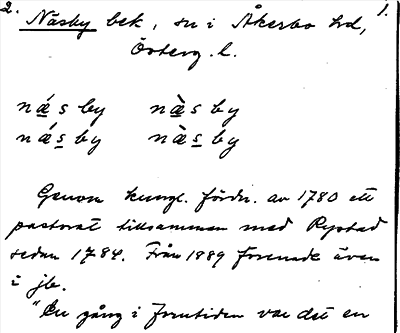 2. 1.
Näsby bek, sn i Åkerbo hd,
Österg. l.
nǽs by næ̀s by
nǽs by næ̀s by
Genom kungl. förordn. av 1780 ett
pastorat tillsammen med Rystad
sedan 1784. Från 1889 förenade även
i jb.
"En gång i forntiden var det en